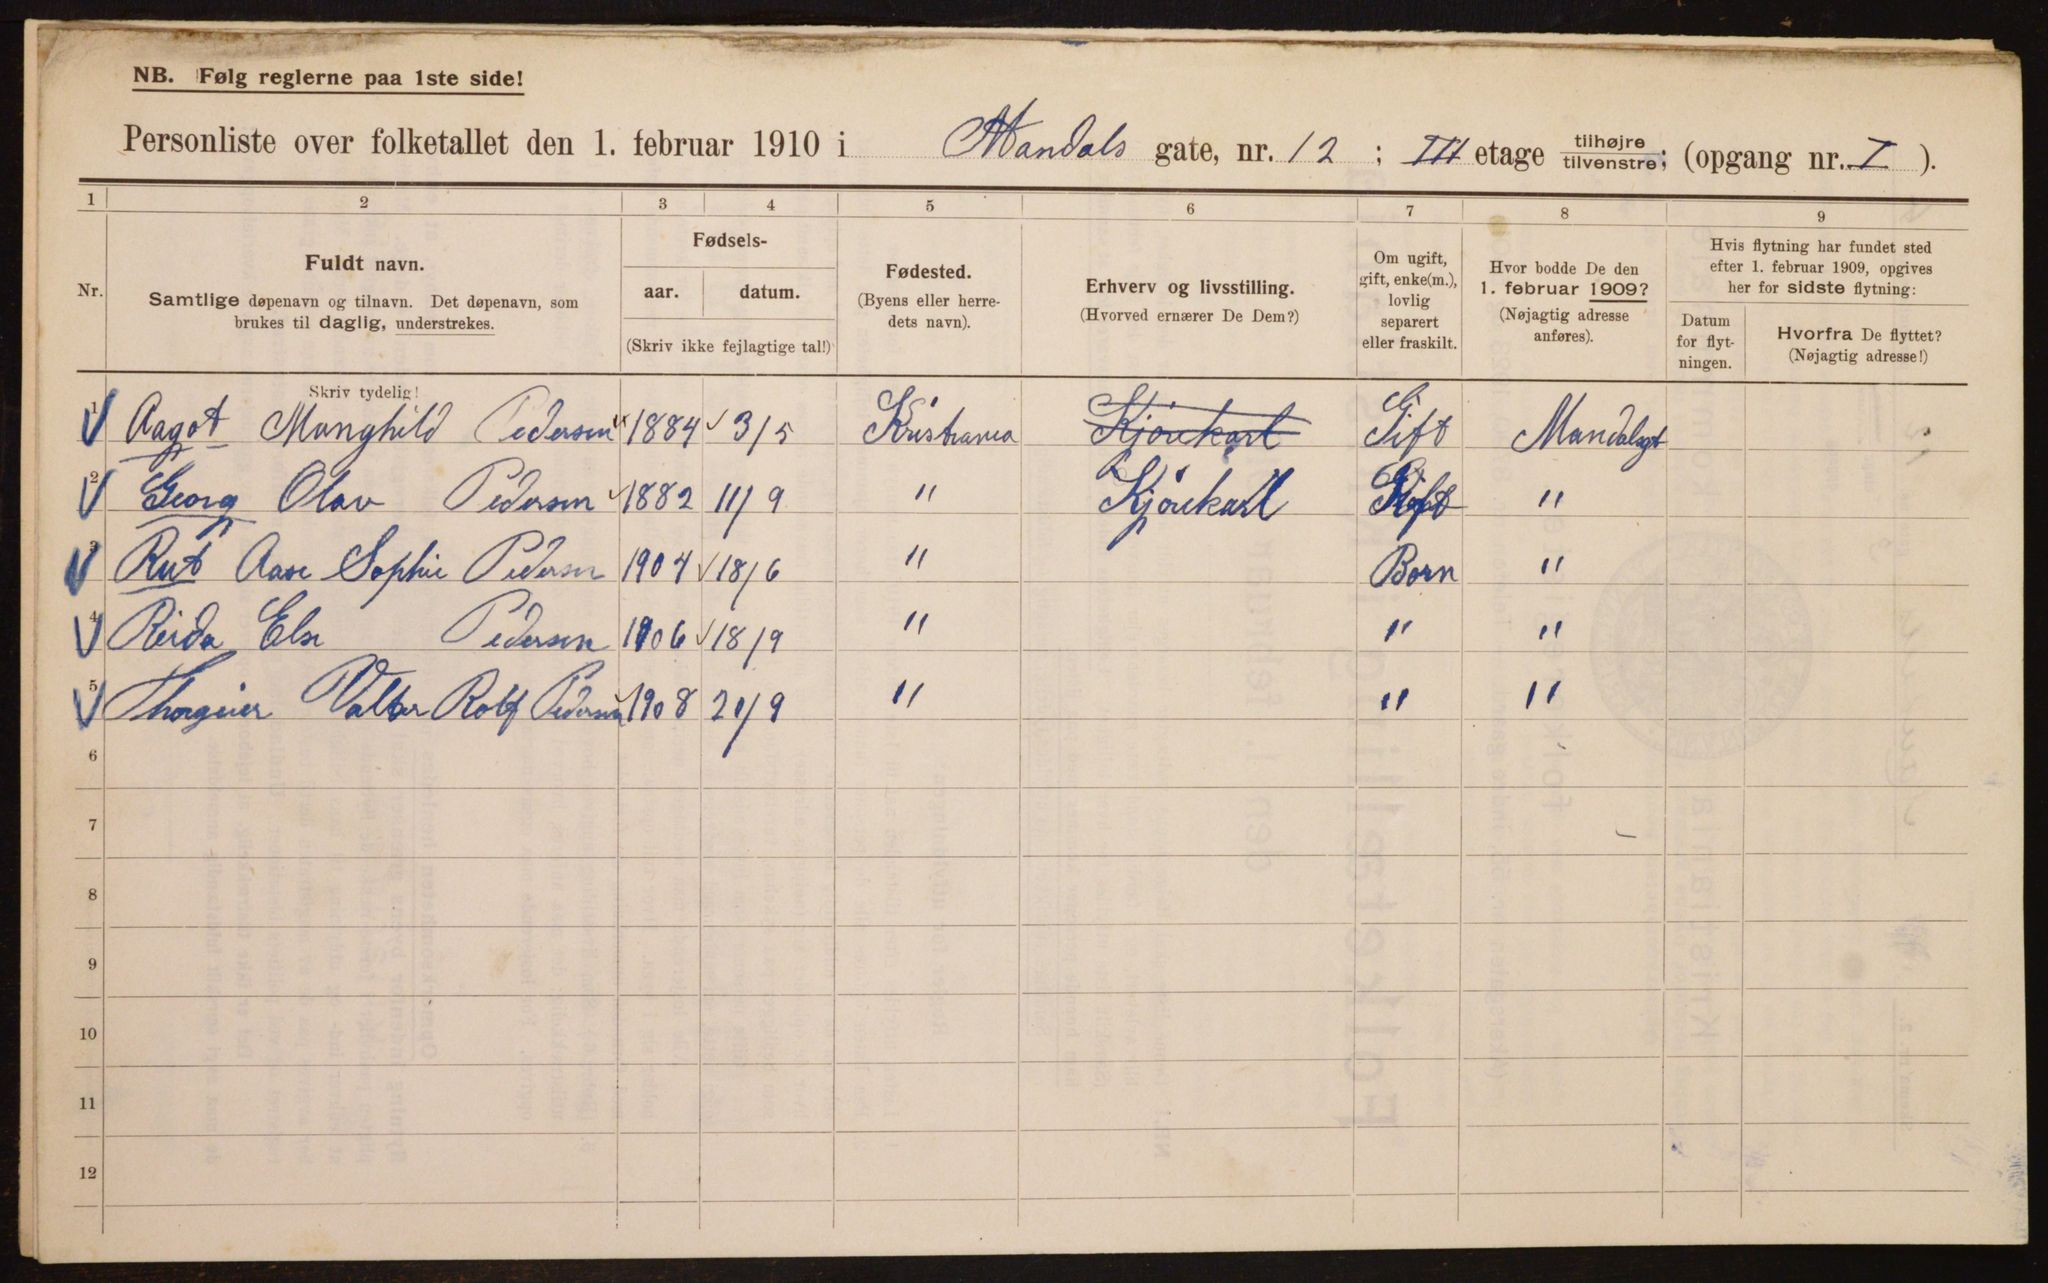 NB. Følg reglerne paa 1ste side!
Personliste over folketallet den 1. februar 1910 i Mandals gate, nr. 12 ; III etage tilhøjre tilvenstre; (opgang nr. I ).
1 2 3 4 5 6 7 8 9
Nr.
Fuldt navn.
Samtlige døpenavn og tilnavn. Det døpenavn, som
brukes til daglig, understrekes.
Skriv tydelig!
Fødsels-
aar. datum.
(Skriv ikke fejlagtige tal!)
Fødested.
(Byens eller herre-
dets navn).
Erhverv og livsstilling.
(Hvorved ernærer De Dem?)
Om ugift,
gift, enke(m.),
lovlig
separert
eller fraskilt.
Hvor bodde De den
1. februar 1909?
(Nøjagtig adresse
anføres).
Hvis flytning har fundet sted
efter 1. februar 1909, opgives
her for sidste flytning:
Datum
for flyt-
ningen.
Hvorfra De flyttet?
(Nøjagtig adresse!)
1 Aagot Manghild Pedersen 1884 3/5 Kristiania Kjørekarl Gift Mandalsgt
2 Georg Olav Pedersen 1882 11/9 " Kjørekarl Gift "
3 Rut Aase Sophie Pedersen 1904 18/6 " Born "
4 Reida Else Pedersen 1906 18/9 " " "
5 Thorgeier Valter Rolf Pedersen 1908 21/9 " " "
6
7
8
9
10
11
12